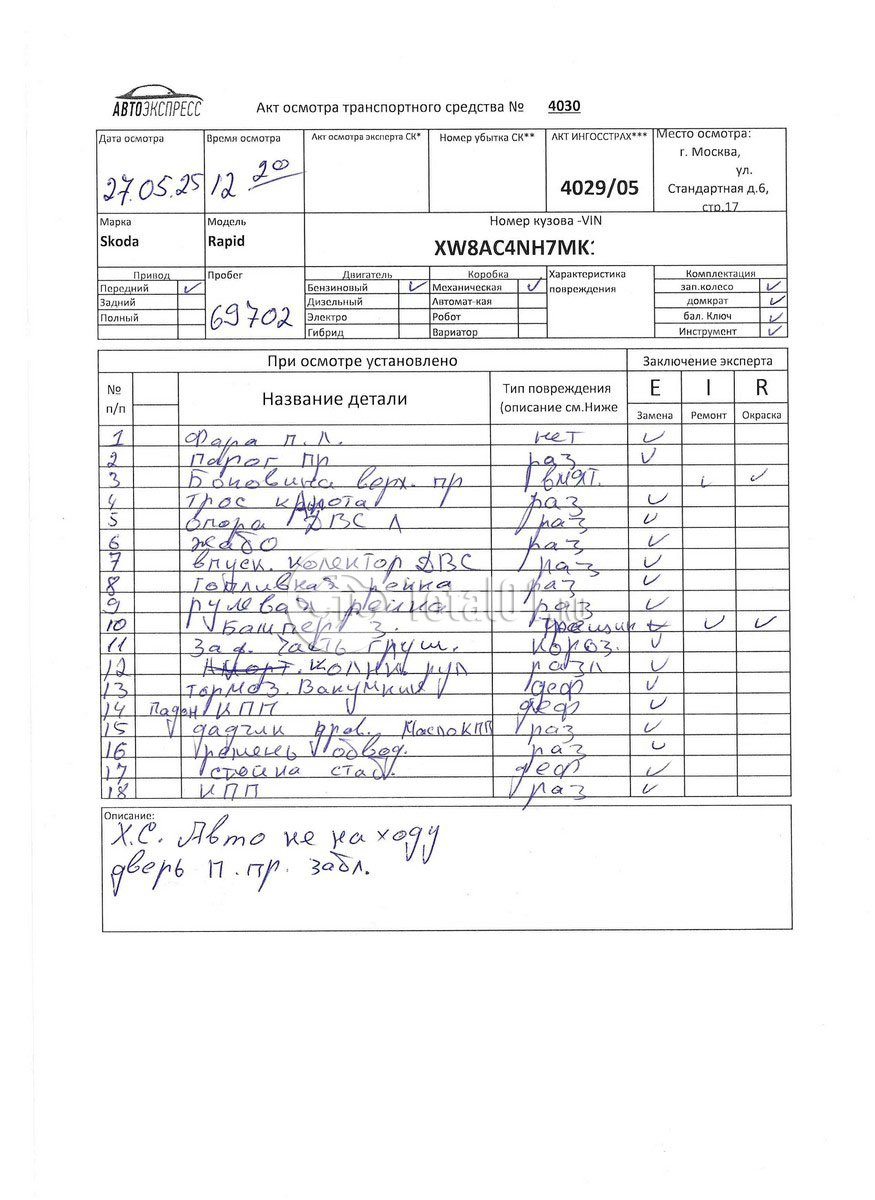 АВТОЭКСПРЕСС
Акт осмотра транспортного средства № 4030
Дата осмотра Время осмотра Акт осмотра эксперта СК* Номер убытка СК** АКТ ИНГОССТРАХ*** Место осмотра:
27.05.25 12 20 4029/05 г. Москва,
ул.
Стандартная д.6,
стр.17
Марка Модель Номер кузова -VIN
Skoda Rapid XW8AC4NH7MK
Привод Пробег Двигатель Коробка Характеристика повреждения Комплектация
Передний ✓ 69702 Бензиновый ✓ Механическая ✓ зап.колесо ✓
Задний Дизельный Автомат-кая домкрат ✓
Полный Электро Робот бал. Ключ ✓
Гибрид Вариатор Инструмент ✓
При осмотре установлено Заключение эксперта
№ п/п Название детали Тип повреждения (описание см.Ниже E I R
Замена Ремонт Окраска
1 Фара п.л. нет ✓
2 Парог пр раз ✓
3 Боковина верх. пр вмят. i ✓
4 Трос капота раз ✓
5 опора ДВС Л раз ✓
6 жабо раз ✓
7 впуск. колектор ДВС раз ✓
8 Топливная рейка раз ✓
9 рулевая рейка раз ✓
10 Бампер з. ✓ ✓
11 Зад. часть глуш. короз. ✓
12 разл ✓
13 тормоз. Вакумник деф ✓
14 КПП деф ✓
15 дадчик уров. Масло КПП раз ✓
16 ремень обвод. раз ✓
17 стойка стаб. деф ✓
18 КПП раз ✓
Описание:
Х.С. Авто не на ходу
дверь П. пр. забл.
Total01.RU